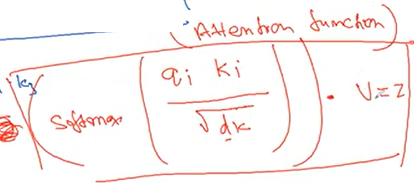 (Attention function)
k3
(Softmax (qi ki / √dk)) . V = Z